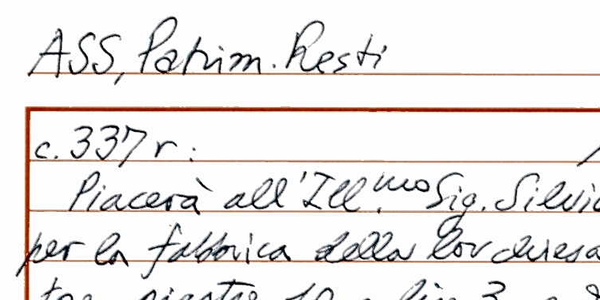 ASS, Patrim. Resti
c. 337 r:
Piacerà all'Ill.mo Sig. Silvio
per la fabbrica della lor chiesa
piastre 10